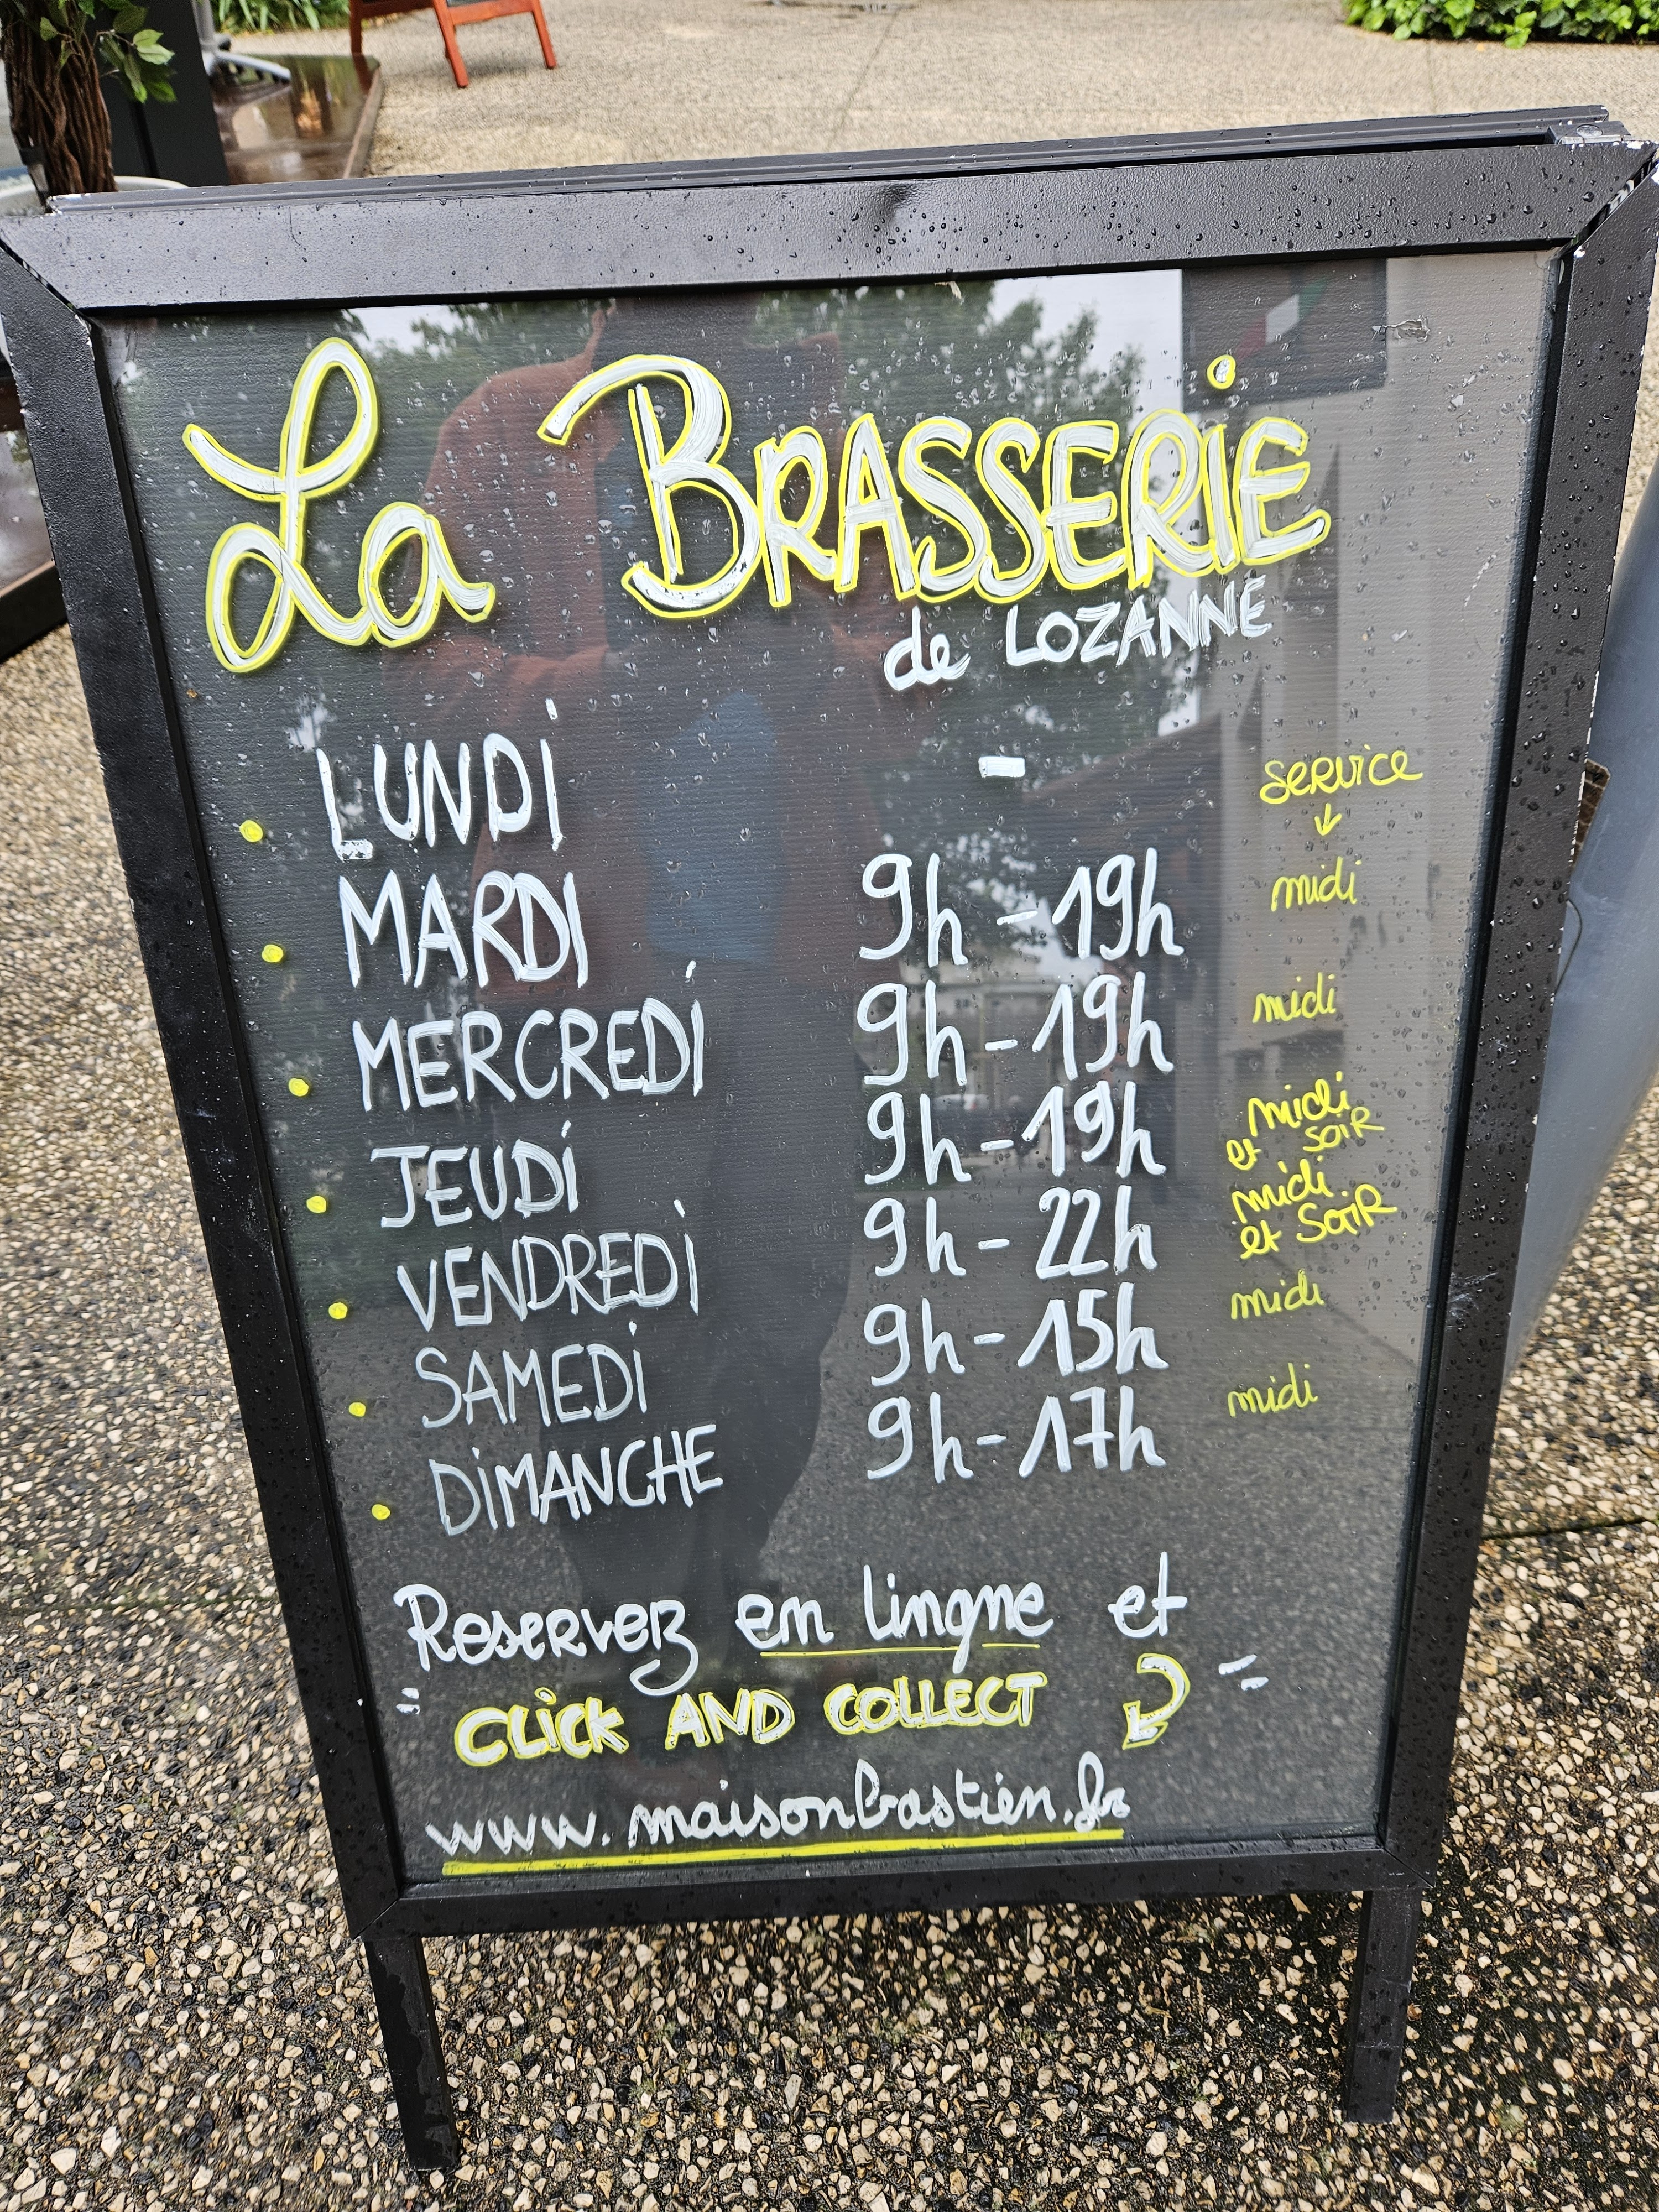 La BRASSERIE
de LOZANNE
• LUNDI - service ↓
• MARDI 9h-19h midi
• MERCREDI 9h-19h midi
• JEUDI 9h-19h midi et soir
• VENDREDI 9h-22h midi et soir
• SAMEDI 9h-15h midi
• DIMANCHE 9h-17h midi
Reservez en lingne et
" CLICK AND COLLECT "
www.maisonbastien.fr